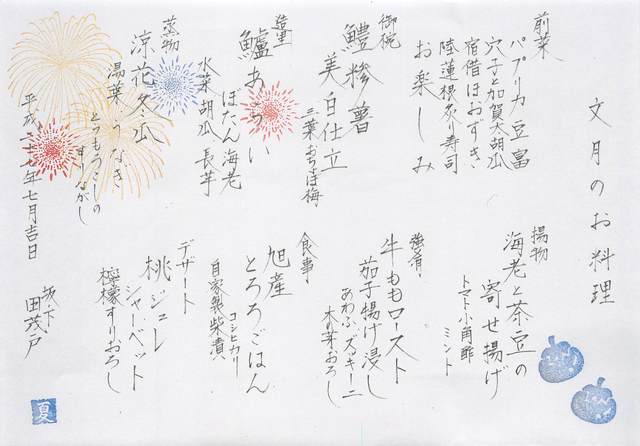 文月のお料理
前菜
パプリカ豆富
穴子と加賀太胡瓜
宿借ほおずき
陸蓮根炙り寿司
お楽しみ
御椀
鱧糝薯
美白仕立
三葉おちほ梅
造里
鱸あらい
ぼたん海老
水菜胡瓜長芋
蒸物
涼花冬瓜
湯葉うなぎ
とうもろこしの
すりながし
揚物
海老と茶豆の
寄せ揚げ
トマト小角酢
ミント
強肴
牛ももロースト
茄子揚げ浸し
あわふズッキーニ
木の芽おろし
食事
旭産
とろろごはん
コシヒカリ
自家製柴漬
デザート
桃ジュレ
シャーベット
檸檬すりおろし
平成二十七年七月吉日
坂下
田茂戸
夏